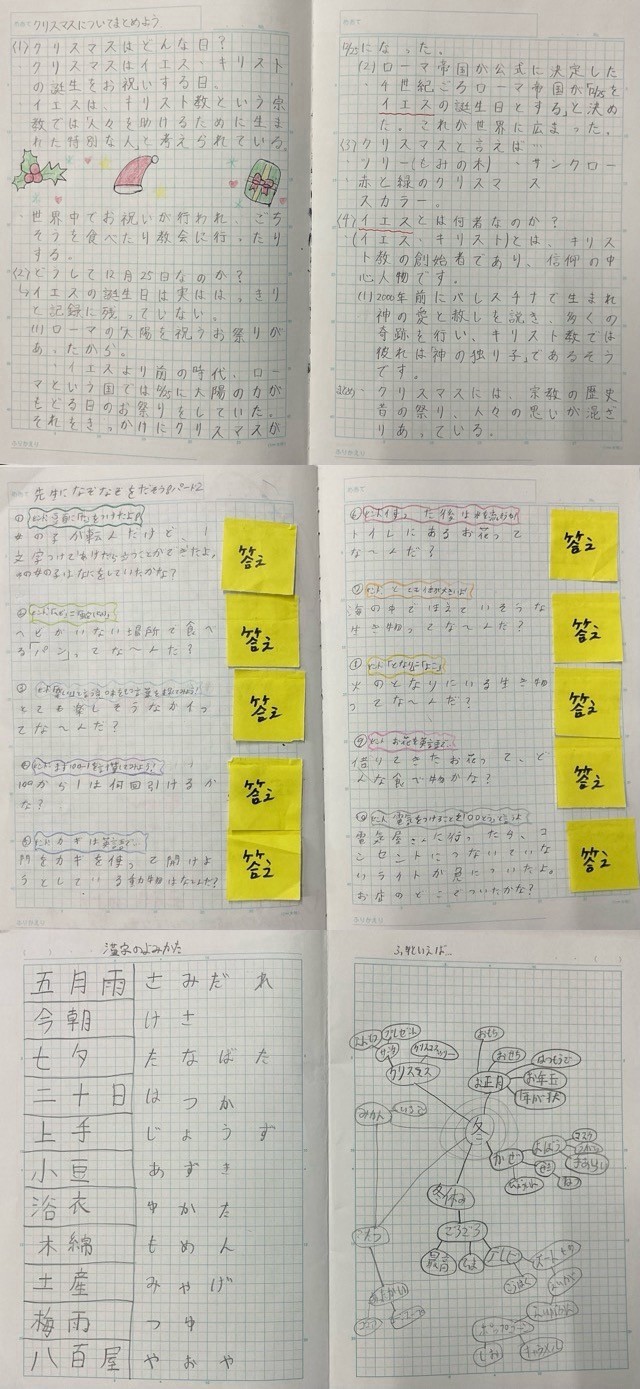 クリスマスについてまとめよう
(1)クリスマスはどんな日?
クリスマスはイエス・キリスト
の誕生をお祝いする日。
イエスは、キリスト教という宗
教では「人々を助けるために生ま
れた特別な人」と考えられている。
・世界中でお祝いが行われ、ごち
そうを食べたり教会に行ったり
する。
(2)どうして12月25日なのか?
イエスの誕生日は実ははっきり
と記録に残っていない。
(1)ローマの「太陽を祝うお祭りが
あったから。
・イエスより前の時代、ロー
マという国では12/25に太陽の力が
もどる日のお祭りをしていた。
それをきっかけにクリスマスが
12/25になった。
(2)ローマ帝国が公式に決定した
4世紀ごろローマ帝国が「12/25を
イエスの誕生日とする」と決め
た。これが世界に広まった。
(3)クリスマスと言えば…
ツリー(もみの木)・サンタクロー
赤と緑のクリスマス
スカラー。
(4)イエスとは何者なのか?
(イエス・キリスト)とは、キリス
ト教の創始者であり、信仰の中
心人物です。
(1)2000年前にパレスチナで生まれ
神の愛と赦しを説き、多くの
奇跡を行い、キリスト教では
彼れは「神の独り子」であるそう
です。
クリスマスには、宗教の歴史
昔の祭り、人々の思いが混ざ
りあっている。
先生になぞなぞをだそうパート2
女の子が転んだけど、1
文字つけてあげたら立つことができたよ。
この女の子はなにをしていたかな?
答え
ヘビがいない場所で食べ
る「パン」ってな〜んだ?
答え
とても楽しそうなかイっ
てな〜んだ?
答え
100から1は何回引けるか
な?
答え
ヒント カギは英語で…
門をカギを使って開けよ
うとしている動物はなぁんだ?
答え
トイレにあるお花って
な〜んだ?
答え
海の中でほえていそうな
生き物ってな〜んだ?
答え
ヒント「となり」=「よこ」
火のとなりにいる生き物
ってな〜んだ?
答え
ヒント お花を英語で…
借りてきたお花って、ど
んな食べ物かな?
答え
電気屋さんに行ったら、コ
ンセントにつないでいな
いライトが急についたよ。
お店のどこでついたかな?
答え
漢字のよみかた
五月雨 さみだれ
今朝 けさ
七夕 たなばた
二十日 はつか
上手 じょうず
小豆 あずき
浴衣 ゆかた
木綿 もめん
土産 みやげ
梅雨 つゆ
八百屋 やおや
冬といえば…
プレゼント
サンタ
クリスマスツリー
クリスマス
おもち
おせち
はつもうで
お正月
お年玉
みかん
冬
かぜ
よぼう
マスク
冬休み
ごろごろ
最高
テレビ
ポップコーン
しお
キャラメル